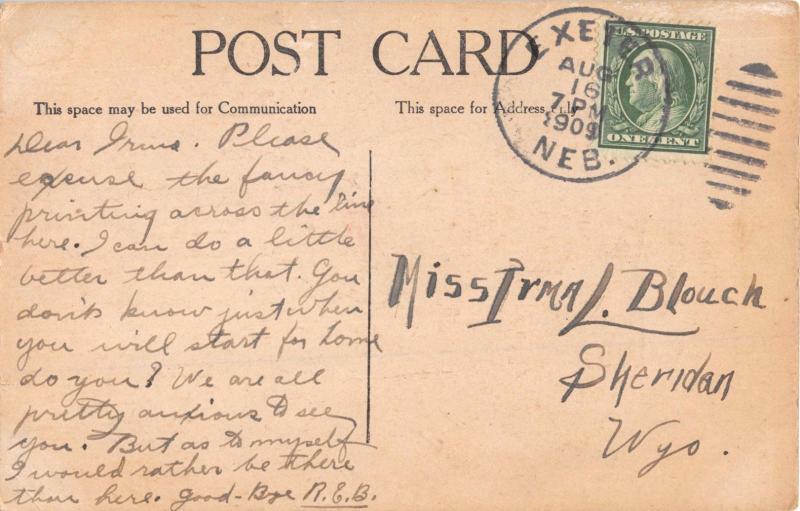 POST CARD
This space may be used for Communication
This space for Address only
EXETER
AUG
16
7 PM
1909
NEB.
U.S. POSTAGE
ONE CENT
Dear Irma. Please
excuse the fancy
printing across the line
here. I can do a little
better than that. You
don't know just when
you will start for home
do you? We are all
pretty anxious to see
you. But as to myself
I would rather be there
than here. Good-Bye R.E.B.
Miss Irma L. Blouch.
Sheridan
Wyo.